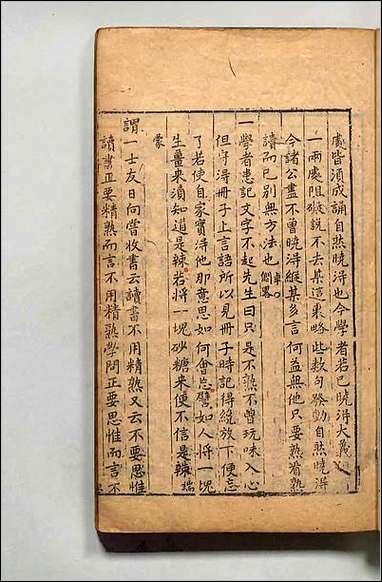 處皆須成誦自然曉得也今學者若已曉得大義
一兩處阻礙說不去某這裏略些數句發動自然曉得
今諸公盡不曾曉得縱某多言何益無他只要熟看熟
讀而已別無方法也
一學者患記文字不起先生曰只是不熟不曾玩味入心
但守得冊子上言語所以見冊子時記得纔放下便忘
了若使自家實得他那意思如何會忘譬如人將一塊
生薑來須知道是辣若將一塊砂糖來便不信是辣
蒙
謂一士友曰向嘗收書云讀書不用精熟又云不要思惟
讀書正要精熟而言不用精熟學問正要思惟而言不